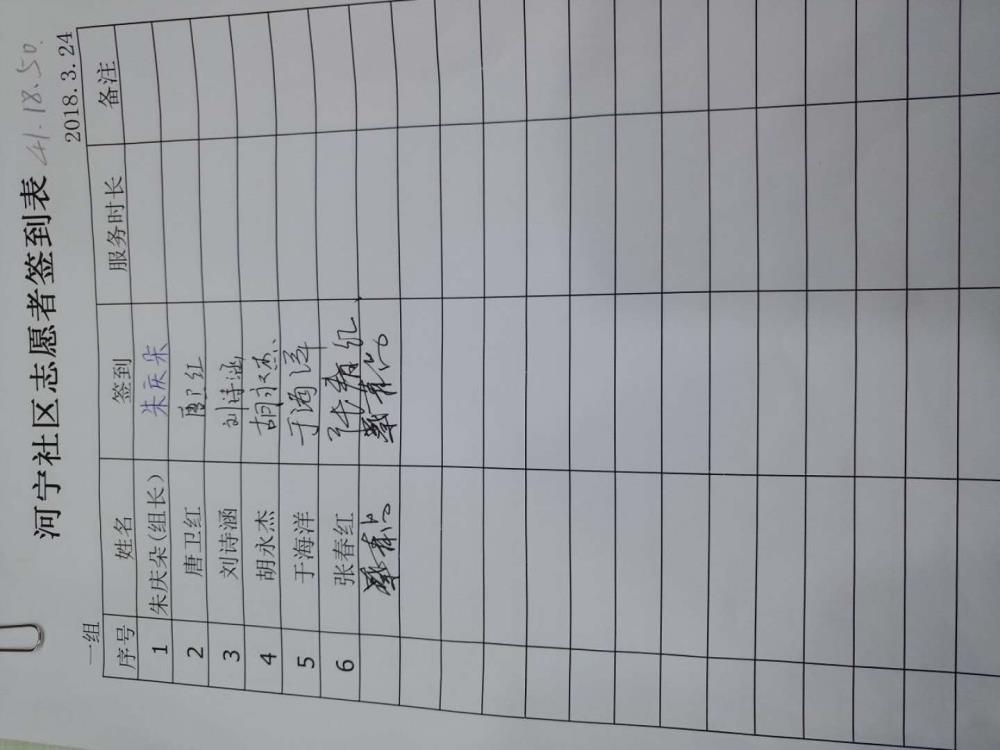 河宁社区志愿者签到表 41.18.50.
一组 2018.3.24
序号 姓名 签到 服务时长 备注
1 朱庆朵(组长) 朱庆朵
2 唐卫红 唐卫红
3 刘诗涵 刘诗涵
4 胡永杰 胡永杰
5 于海洋 于海洋
6 张春红 张春红